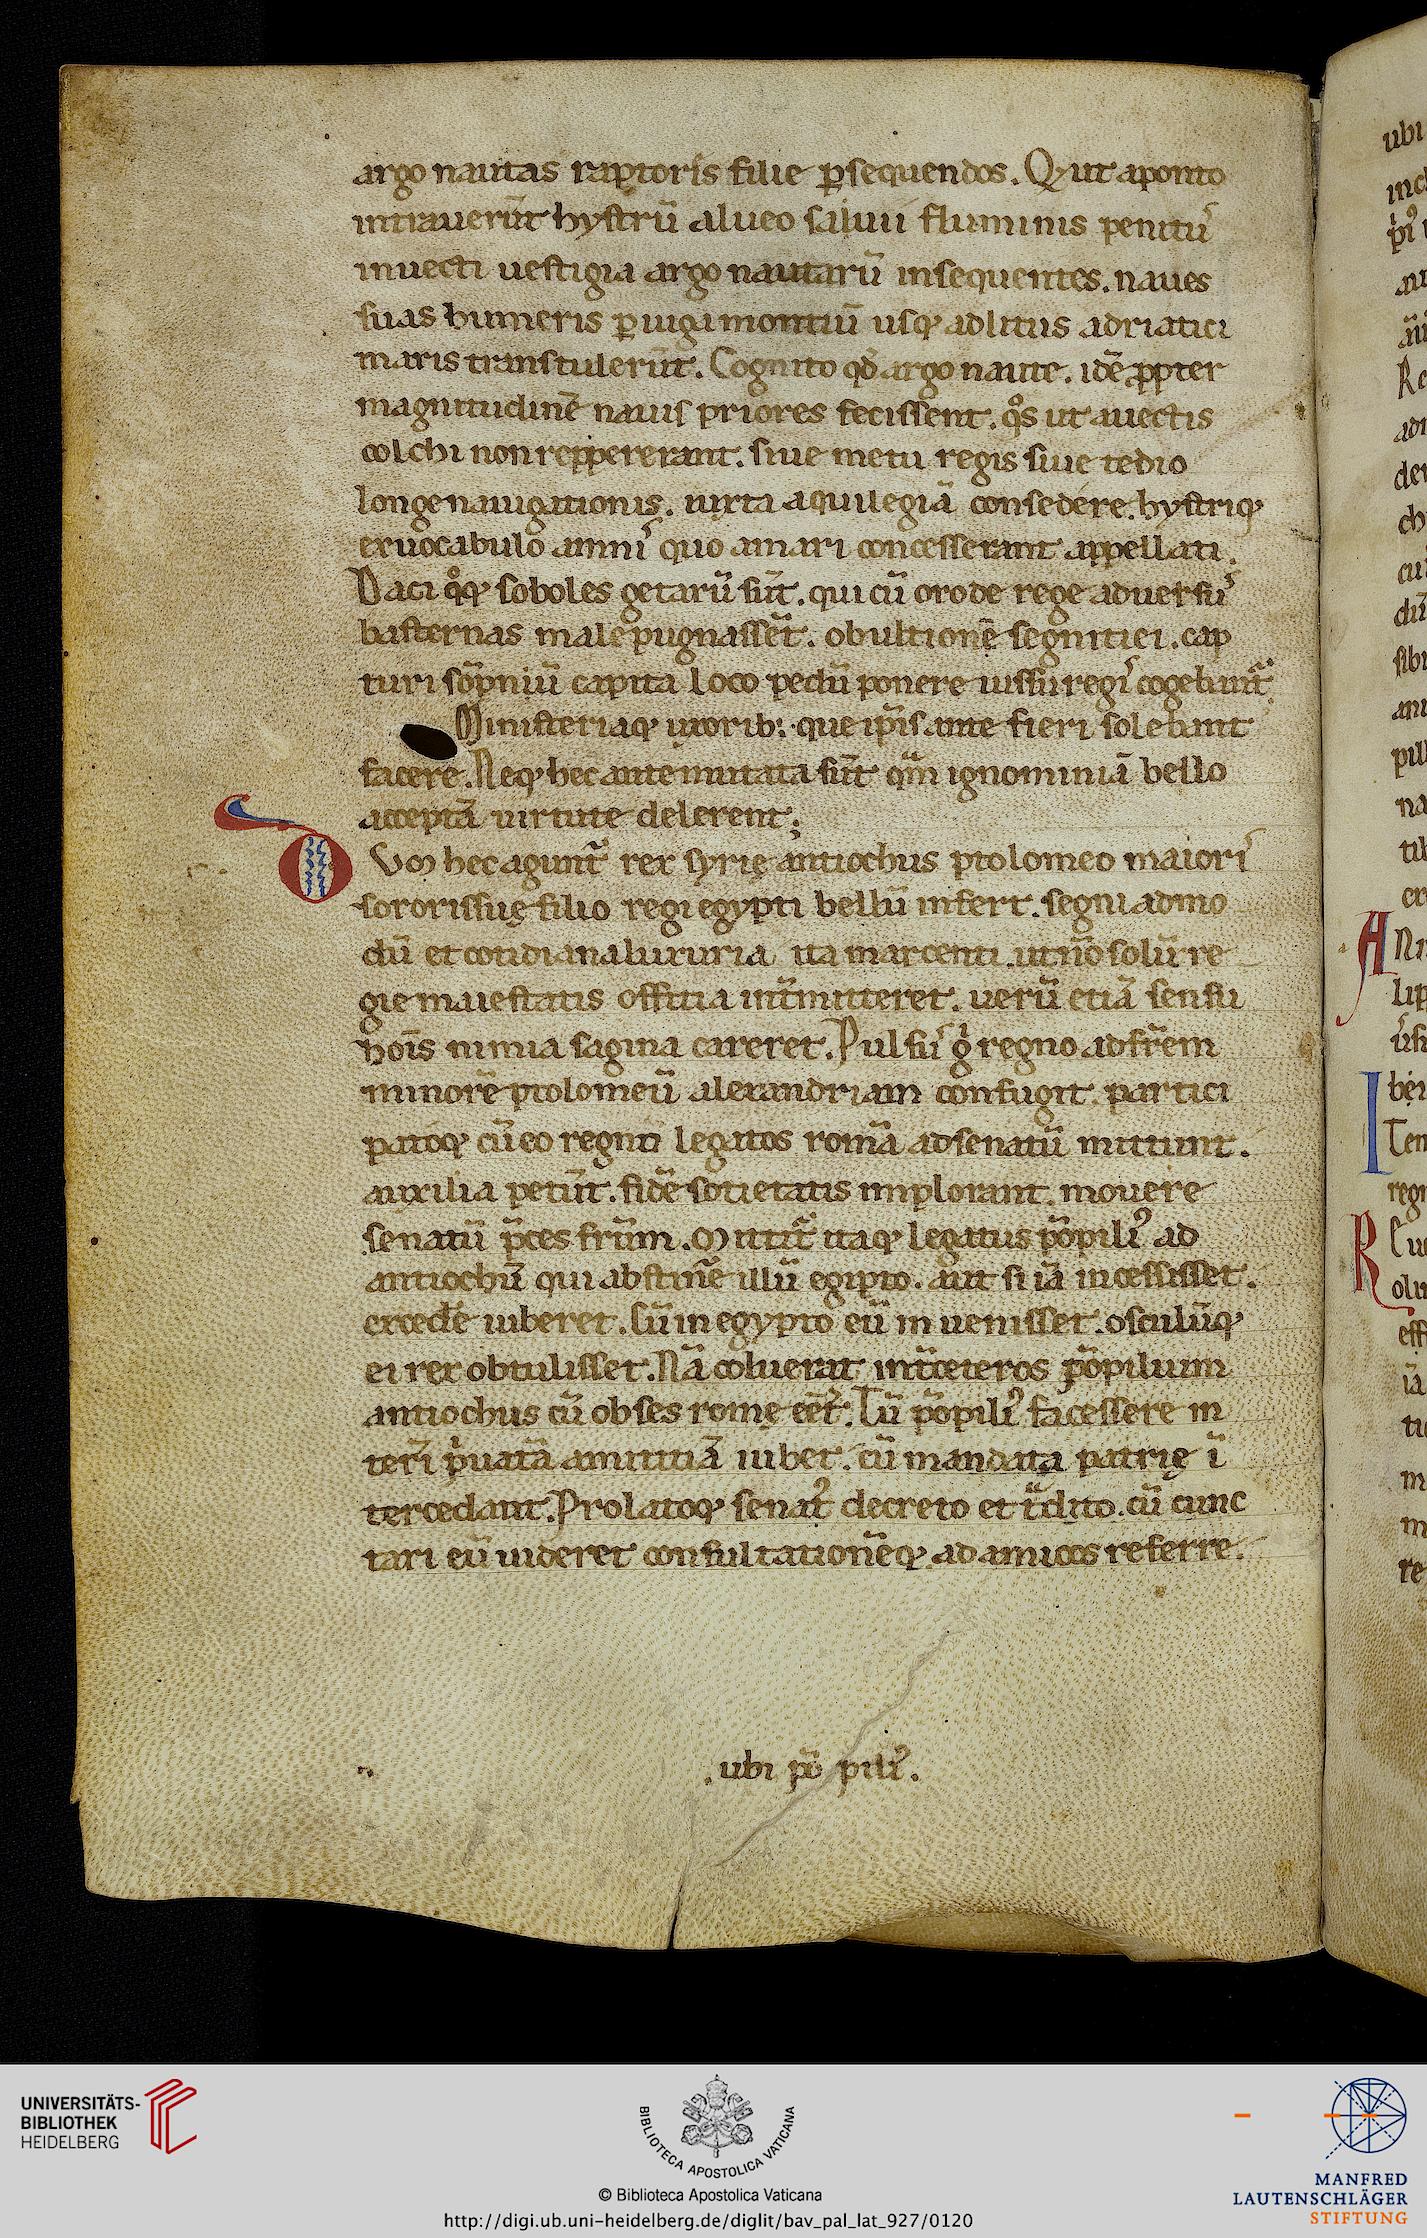 argo nautas raptoris filie ꝑsequendos. Qui ut aponto
intrauerūt hystrū alueo saluii fluminis penitus
inuecti uestigia argo nautarū insequentes. naues
suas humeris ꝑ iuga montiū usq; ad litus adriatici
maris transtulerūt. Cognito qđ argo naute. idē ꝓpter
magnitudinē nauis priores fecissent. q̊s ut auectis
colchi non reppererant. siue metu regis siue tedio
longe nauigationis. iuxta aquilegiā consedere. hystriq;
ex uocabulo amnis quo amari concesserant appellati.
Daci q̊q; soboles getarū sūt. qui cū orode rege aduersus
basternas male pugnassēt. ob ultionē segnitiei. cap
turi sōpniū capita loco pedū ponere iussu regis cogebant̃
Ministeriaq; uxorib; que ip̄is ante fieri solebant
facere. Neq; hec ante mutata sūt qm̄ ignominiā bello
acceptā uirtute delerent;
Dum hec agunt̃ rex syrię antiochus ptolomeo maioris
sororis suę filio regi egypti bellū infert. segni admo
dū et cotidiana luxuria ita marcenti. ut nō solū re
gie maiestatis offitia int̄mitteret. uerū etiā sensu
hoīs nimia sagina careret. Pulsus g̊ regno ad fr̄em
minorē ptolomeū alexandriam confugit. partici
patoq; cū eo regno legatos romā ad senatū mittunt.
auxilia petūt. fidē sotietatis implorant. mouere
senatū p̄ces fr̄um. Mittit̃ itaq; legatus pōpili᷒ ad
antiochū qui abstinē illū egipto. aut si iā incessisset.
excedē iuberet. Cū in egypto eū inuenisset. osculūq;
ei rex obtulisset. Nā coluerat int̄ ceteros pōpilium
antiochus cū obses romę eēt. Tū pōpili᷒ facessere in
terī p̄uatā amititiā iubet. cū mandata patrię ī
tercedant. Prolatoq; senat᷒ decreto et t̄dito. cū cunc
tari eū uideret consultationēq; ad amicos referre.
.ubi pō pili᷒.
ubi
A
I
R
UNIVERSITÄTS-
BIBLIOTHEK
HEIDELBERG
BIBLIOTECA APOSTOLICA VATICANA
© Biblioteca Apostolica Vaticana
http://digi.ub.uni-heidelberg.de/diglit/bav_pal_lat_927/0120
MANFRED
LAUTENSCHLÄGER
STIFTUNG